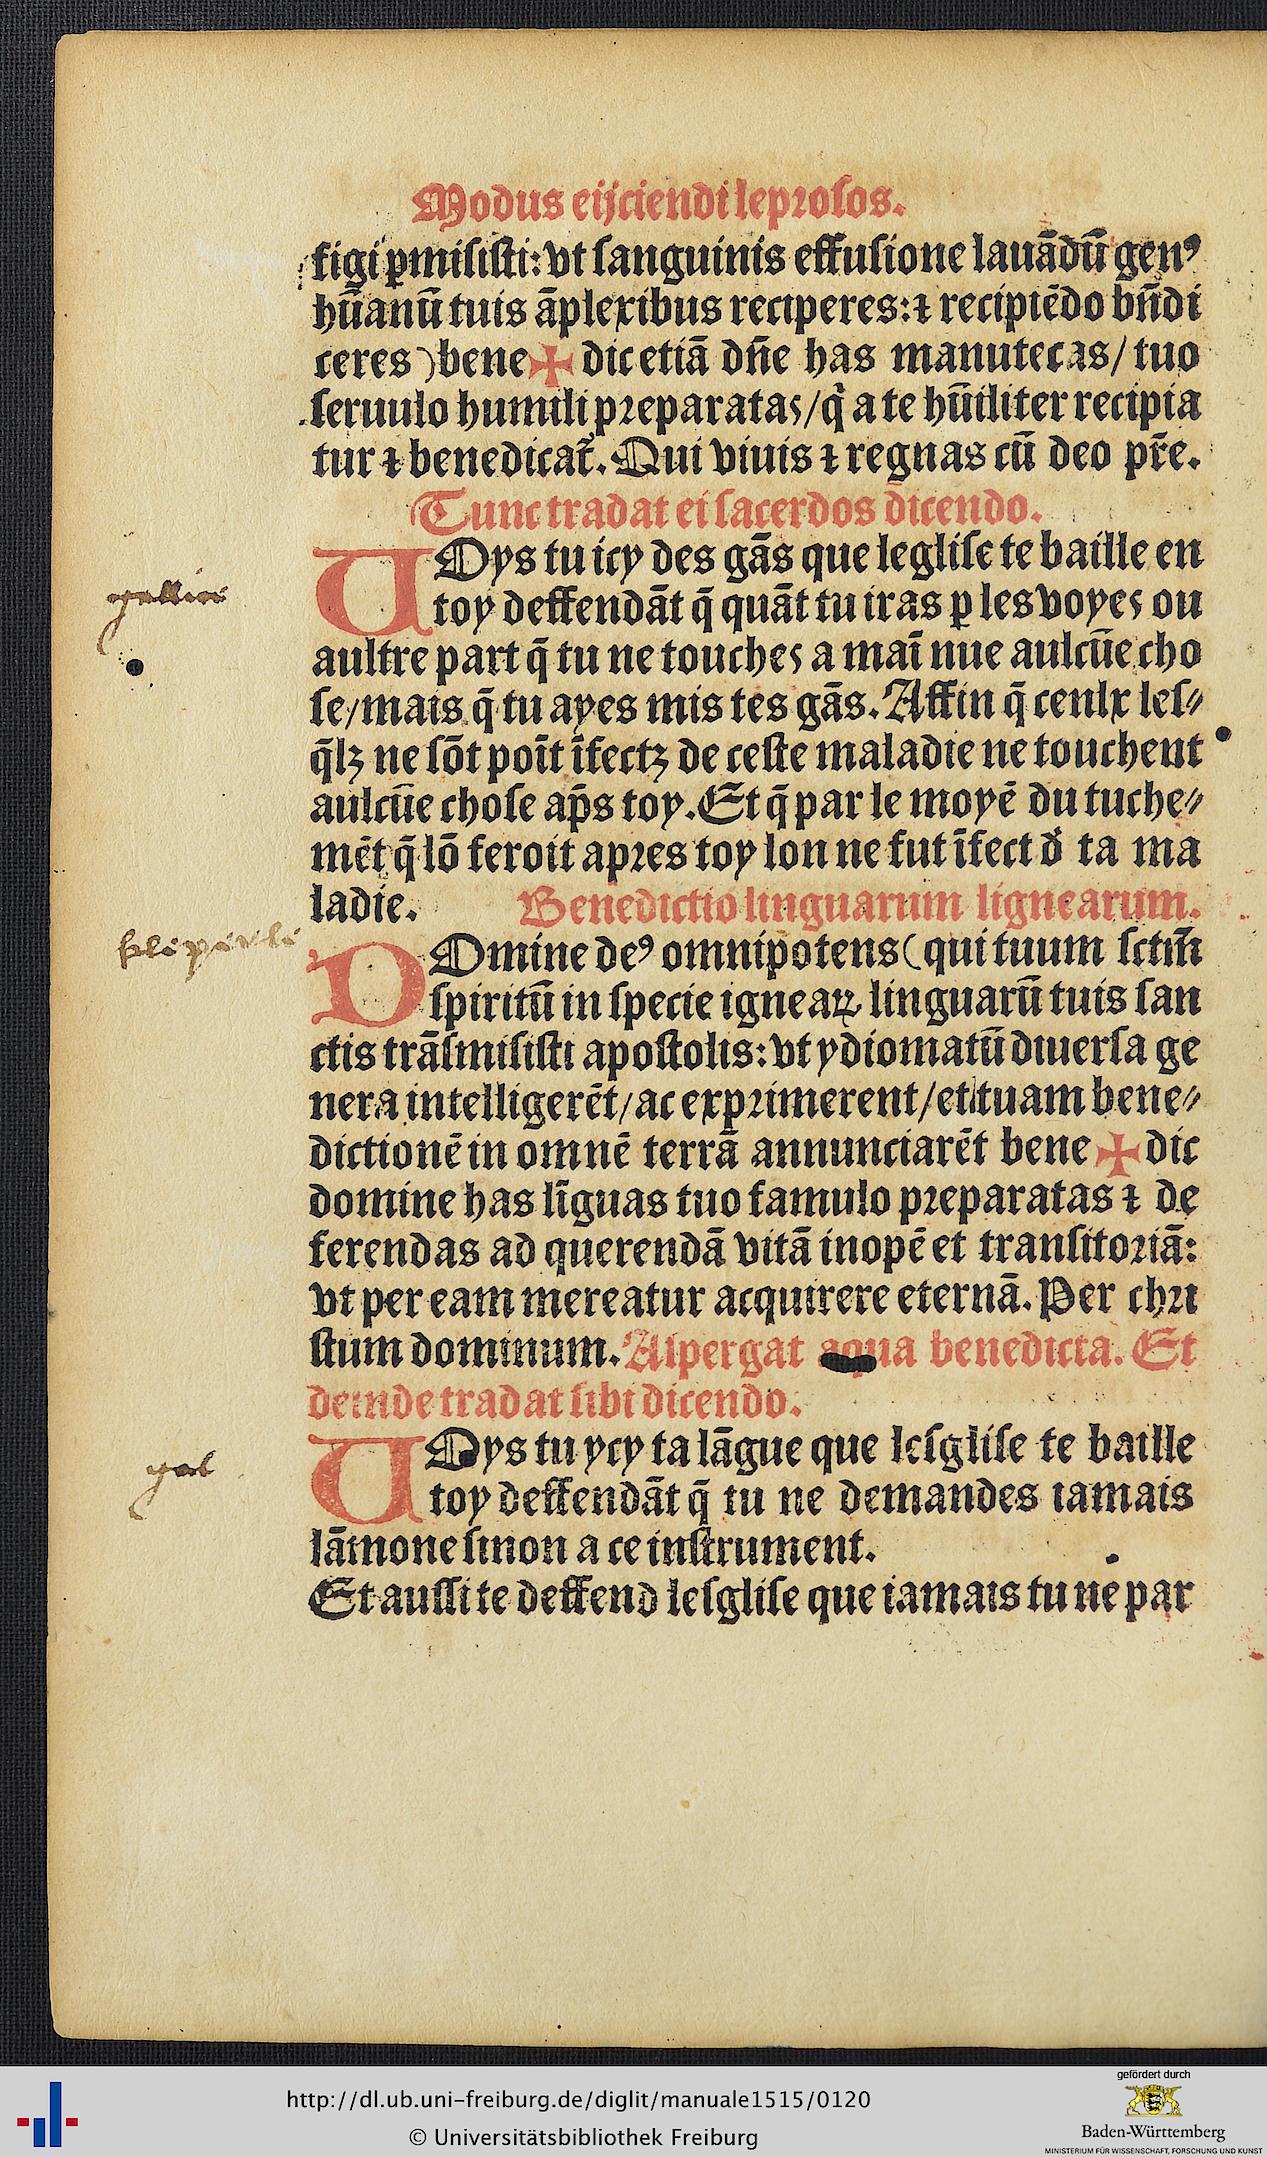 Modus eijciendi leprosos.
figi ꝑmisisti: vt sanguinis effusione lauādū genꝰ
hūanū tuis āplexibus reciperes: ⁊ recipiēdo bn̄di
ceres) bene✠dic etiā dn̄e has manutecas/ tuo
seruulo humili preparatas/ q̄ a te hūiliter recipia
tur ⁊ benedicat̄. Qui viuis ⁊ regnas cū deo pr̄e.
Tunc tradat ei sacerdos dicendo.
UOys tu icy des gās que leglise te baille en
gallice
toy deffendāt q̄ quāt tu iras ꝑ les voyes ou
aultre part q̄ tu ne touches a maī nue aulcūe cho
se/ mais q̄ tu ayes mis tes gās. Affin q̄ ceulx les⸗
q̄lz ne sōt poīt īfectz de ceste maladie ne touchent
aulcūe chose ap̄s toy. Et q̄ par le moyē du tuche⸗
mēt q̄ lō feroit apres toy lon ne fut īfect d̄ ta ma
ladie. Benedictio linguarum lignearum.
DOmine deꝰ omnipotens (qui tuum sctm̄
spiritū in specie igneaꝝ linguarū tuis san
ctis trāsmisisti apostolis: vt ydiomatū diuersa ge
nera intelligerēt/ ac exprimerent/ et tuam bene⸗
dictionē in omnē terrā annunciarēt bene✠dic
domine has līguas tuo famulo preparatas ⁊ de
ferendas ad querendā vitā inopē et transitoriā:
vt per eam mereatur acquirere eternā. Per chri
stum dominum. Aspergat aqua benedicta. Et
deinde tradat sibi dicendo.
UOys tu ycy ta lāgue que lesglise te baille
gal
toy deffendāt q̄ tu ne demandes iamais
lāmone sinon a ce instrument.
Et aussi te deffend lesglise que iamais tu ne par
http://dl.ub.uni-freiburg.de/diglit/manuale1515/0120
© Universitätsbibliothek Freiburg
gefördert durch
Baden-Württemberg
MINISTERIUM FÜR WISSENSCHAFT, FORSCHUNG UND KUNST